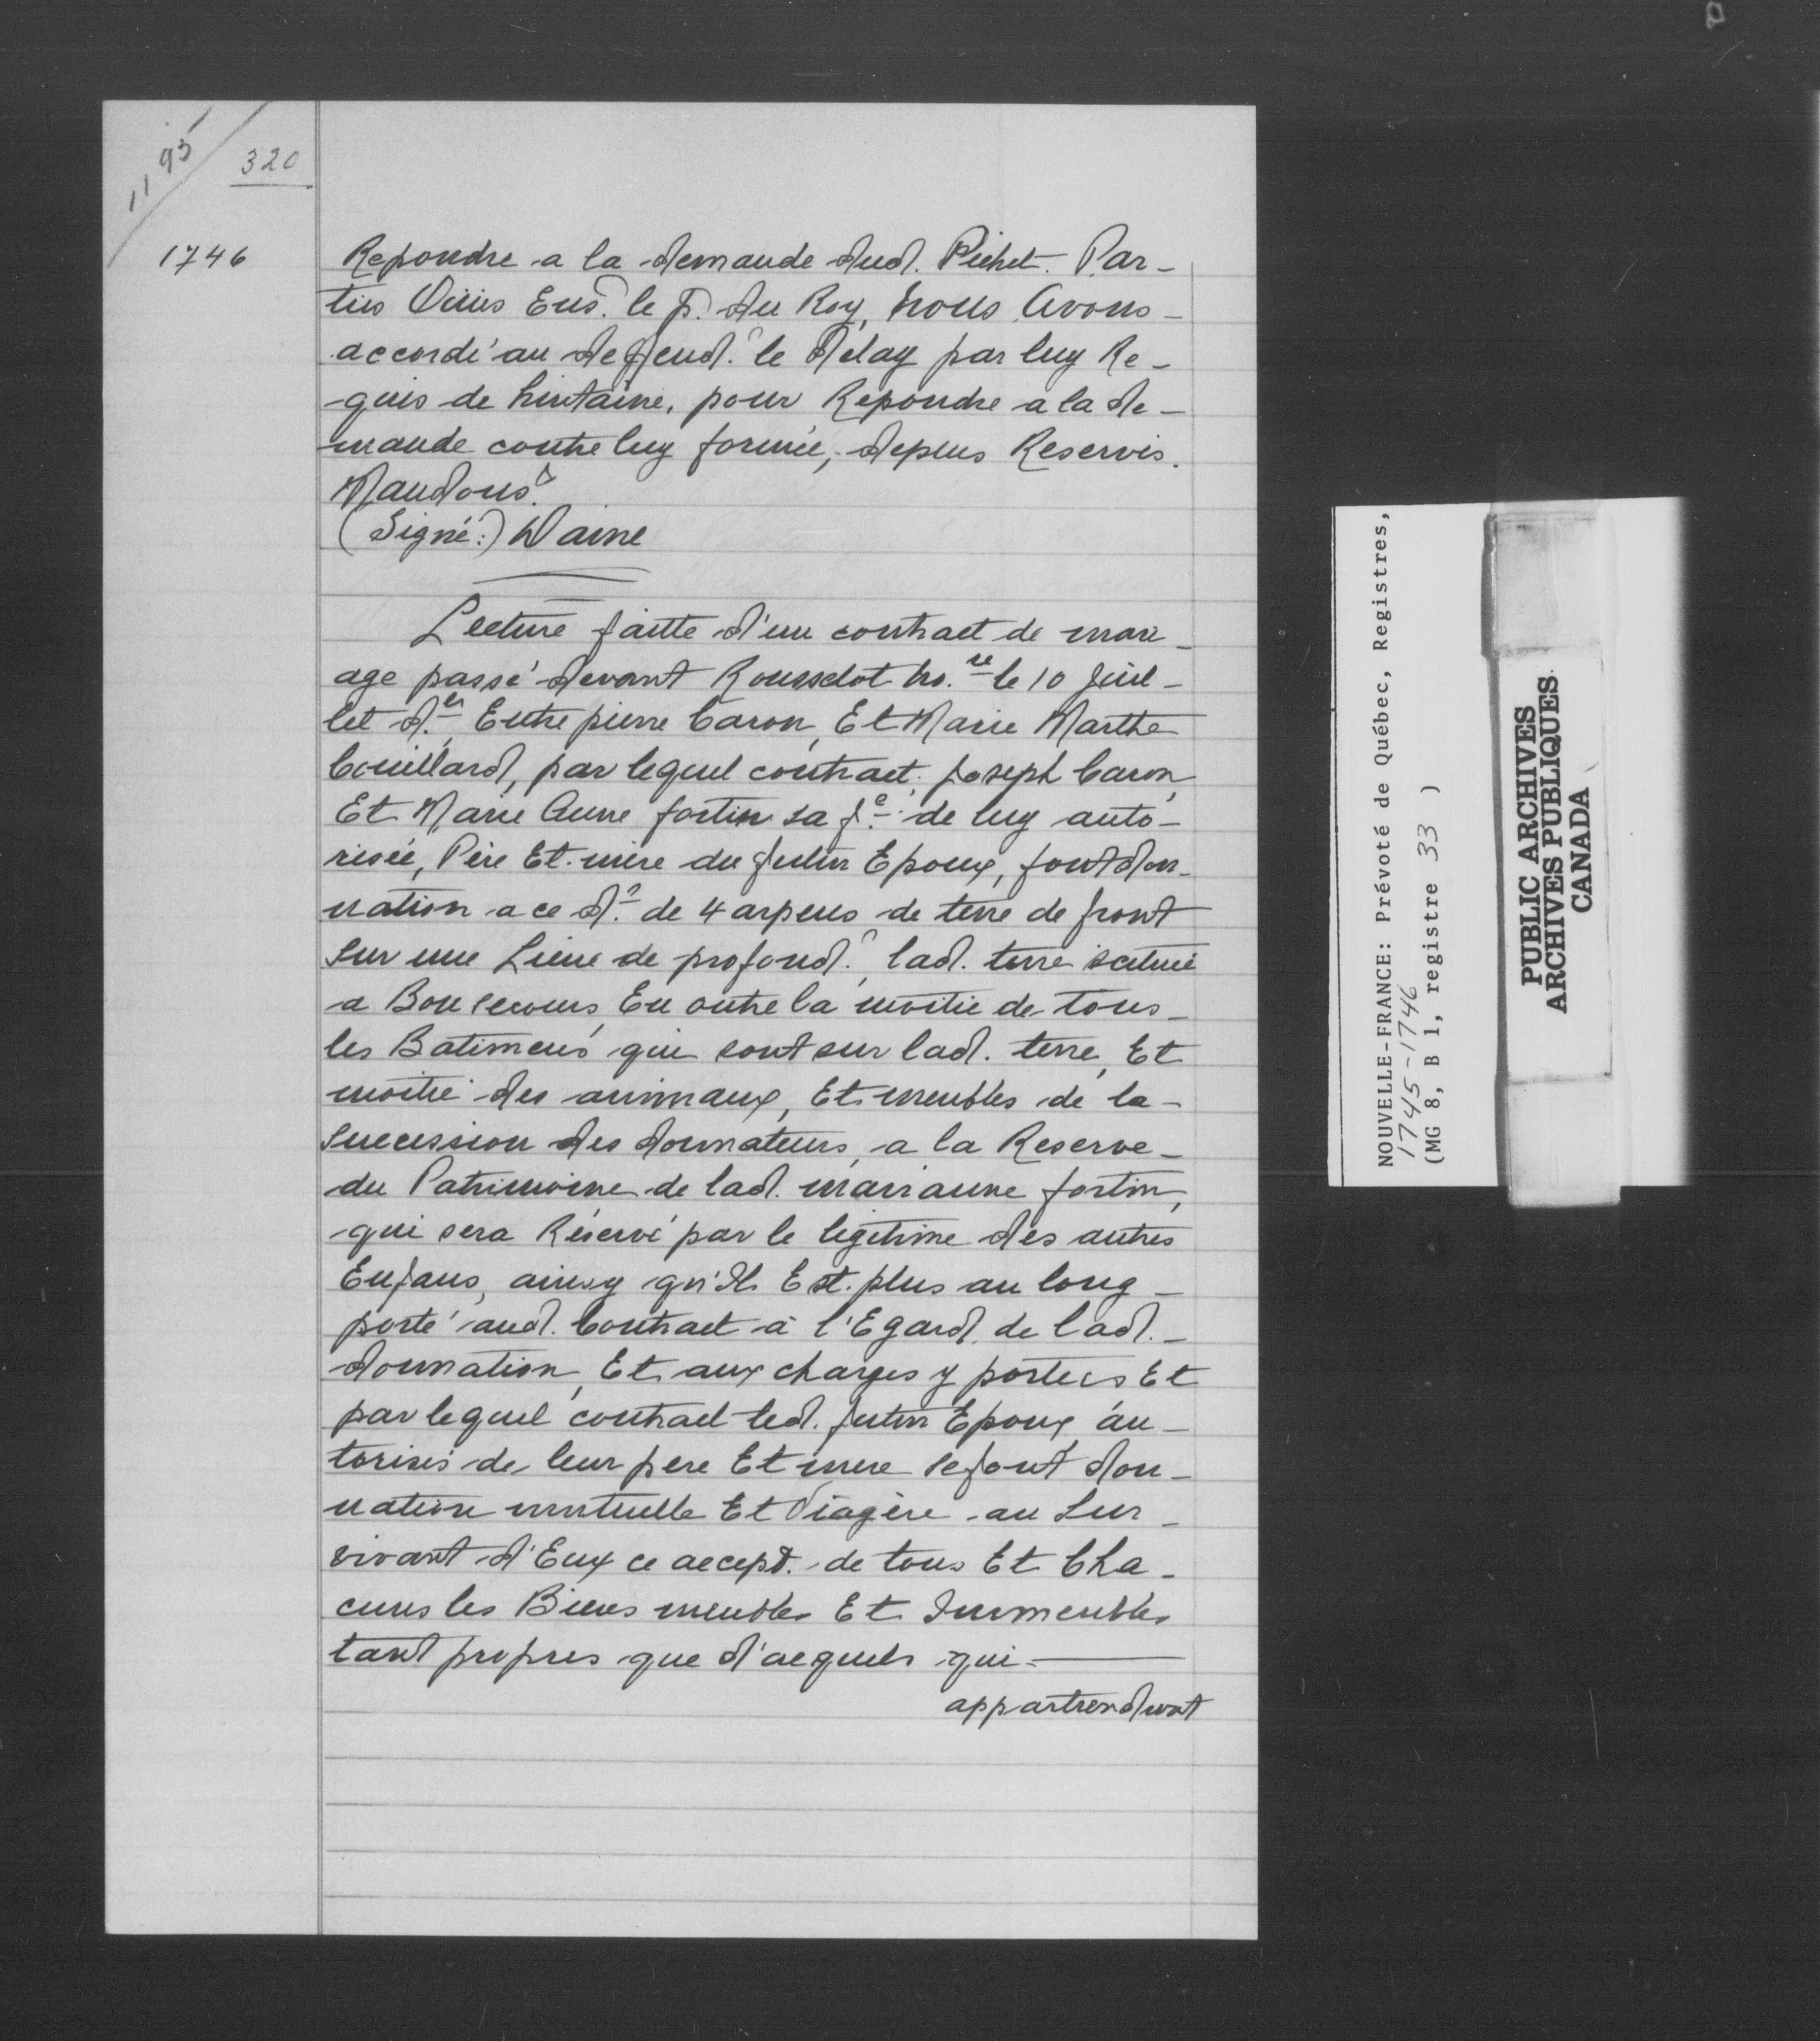 11 95
320
1746
Repondre a la demande dud. Pichet. Par-
ties Oüies Ens. le p. du Roy, Nous Avons-
accordé au deffend. le Délay par luy Re-
-quis de huitaine, pour Repondre a la de-
mande contre luy formée, depens Reservés.
Mandons.
(Signé:) Daine
Lecture faitte d'un contract de mari-
age passé devant Rousselot No.re le 10 Juil-
let d.er Entre pierre Caron, Et Marie Marthe
Couillard, par lequel contract, Joseph Caron,
Et Marie Anne fortin sa f.e de luy auto-
risée, Père Et mère du futur Epoux, font don-
nation a ce d.r de 4 arpens de terre de front
Sur une Lieue de profond. lad. terre scituée
a Bonsecours, En outre la moitie de tous-
les Batimens qui sont sur lad. terre, Et
moitié des animaux, Et meubles de la-
Succession des donnateurs, a la Reserve-
du Patrimoine de lad. marianne fortin,
qui sera Réservé par le legitime des autres
Enfans, ainsy qu'Il Est plus au long-
porté aud. Contract à l'Egard de lad.-
donnation, Et aux charges y portées Et
par lequel contract led. futur Epoux au-
torisés de leur pere Et mere se font don-
nation mutuelle Et Viagère au Sur-
vivant d'Eux ce accept. de tous Et Cha-
cuns les Biens meubles Et Immeubles
tant propres que d'acquets qui-
appartiendront
NOUVELLE-FRANCE: Prévoté de Québec, Registres,
1745-1746
(MG 8, B 1, registre 33 )
PUBLIC ARCHIVES
ARCHIVES PUBLIQUES
CANADA